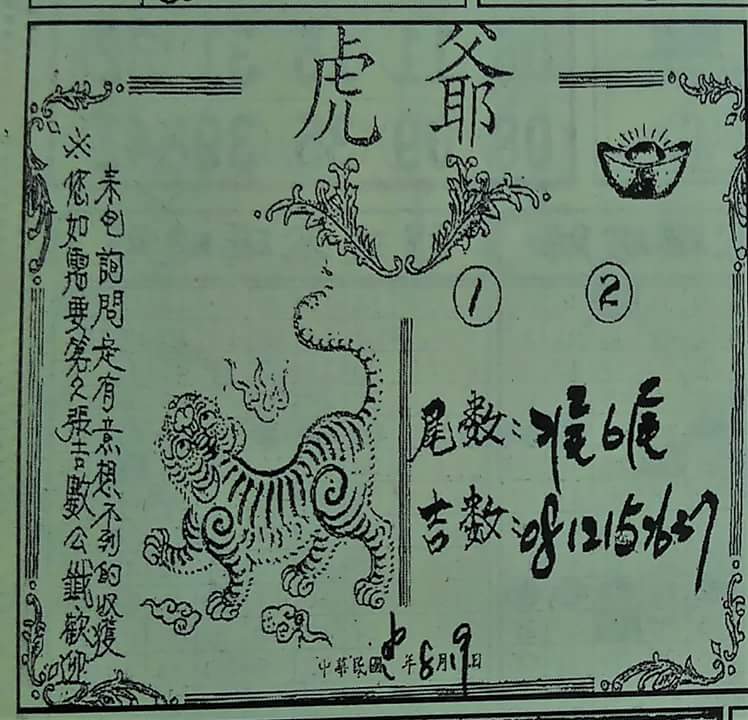 虎爺
① ②
※您如需要第2張吉數公籤歡迎
來电詢問定有意想不到的收獲
尾數:
6尾
吉數:08 12 15
中華民國 年8月19日